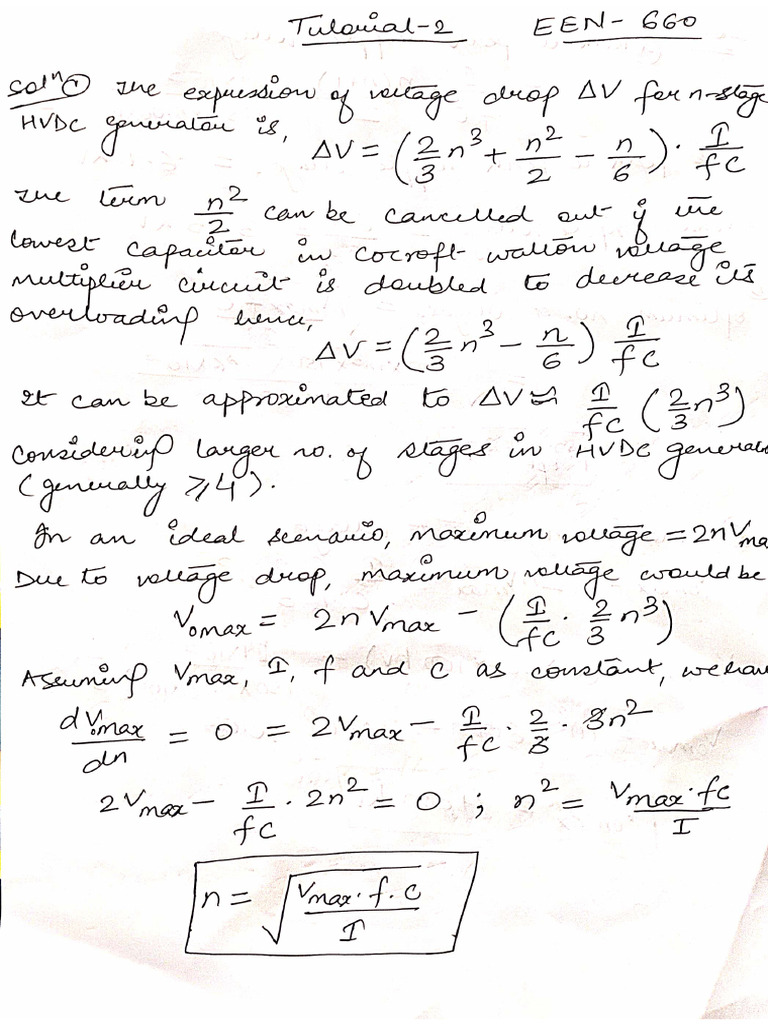 Tutorial-2 EEN-660
Solⁿ ① The expression of voltage drop ΔV for n-stage
HVDC generator is,
ΔV = (2/3 n³ + n²/2 − n/6) · I/fC
The term n²/2 can be cancelled out if the
lowest capacitor in cocroft walton voltage
multiplier circuit is doubled to decrease its
overloading hence,
ΔV = (2/3 n³ − n/6) I/fC
It can be approximated to ΔV ≃ I/fC (2/3 n³)
Considering larger no. of stages in HVDC generato
(generally ⩾4).
In an ideal scenario, maximum voltage = 2nVma
Due to voltage drop, maximum voltage would be
Vomax = 2nVmax − (I/fC · 2/3 n³)
Assuming Vmax, I, f and c as constant, we hav
dVomax/dn = 0 = 2Vmax − I/fC · 2/3 · 3n²
2Vmax − I/fC · 2n² = 0 ; n² = Vmax·fC/I
n = √(Vmax·f·C/I)